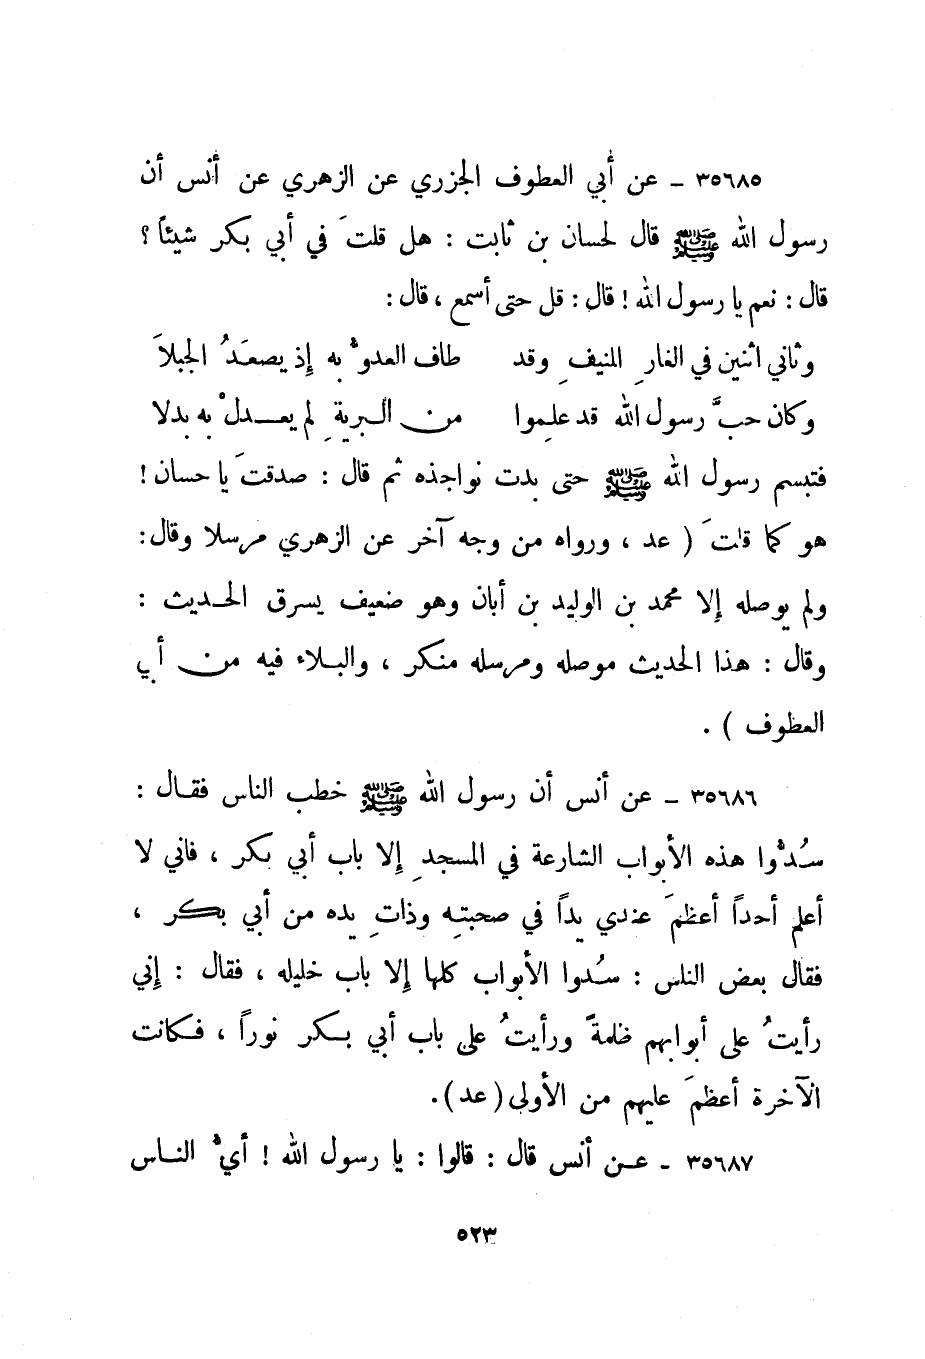 ٣٥٦٨٥ ـ عن أبي العطوف الجزري عن الزهري عن أنس أن
رسول الله ﷺ قال لحسان بن ثابت : هل قلتَ في أبي بكر شيئاً ؟
قال : نعم يا رسول الله ! قال : قل حتى أسمع ، قال :
وثاني اثنين في الغارِ المنيفِ وقد طاف العدوُّ به إذ يصعَدُ الجبلاَ
وكان حبَّ رسول الله قد علِموا من البريةِ لم يعدلْ به بدلا
فتبسم رسول الله ﷺ حتى بدت نواجذه ثم قال : صدقتَ يا حسان !
هو كما قلتَ ( عد ، ورواه من وجه آخر عن الزهري مرسلا وقال :
ولم يوصله إلا محمد بن الوليد بن أبان وهو ضعيف يسرق الحديث :
وقال : هذا الحديث موصله ومرسله منكر ، والبلاء فيه من أبي
العطوف ) .
٣٥٦٨٦ ـ عن أنس أن رسول الله ﷺ خطب الناس فقال :
سُدُّوا هذه الأبواب الشارعة في المسجدِ إلا باب أبي بكر ، فاني لا
أعلم أحداً أعظمَ عندي يداً في صحبتِه وذاتِ يده من أبي بكر ،
فقال بعض الناس : سُدوا الأبواب كلها إلا باب خليله ، فقال : إني
رأيتُ على أبوابهم ظلمةً ورأيتُ على باب أبي بكر نوراً ، فكانت
الآخرة أعظمَ عليهم من الأولى ( عد ) .
٣٥٦٨٧ ـ عن أنس قال : قالوا : يا رسول الله ! أيُّ الناس
٥٢٣